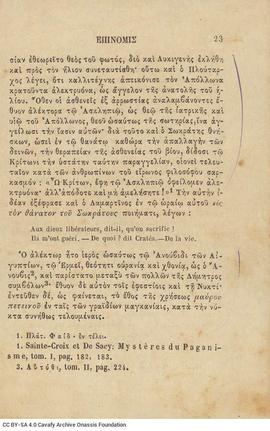 ΕΠΙΝΟΜΙΣ 23
σίαν ἐθεωρεῖτο θεὸς τοῦ φωτός, διὸ καὶ Λυκιγενὴς ἐκλήθη
καὶ πρὸς τὸν ἥλιον συνεταυτίσθη· οὕτω καὶ ὁ Πλούταρ-
χος λέγει, ὅτι καλλιτέχνης ἀπεικόνισε τὸν Ἀπόλλωνα
κρατοῦντα ἀλεκτρυόνα, ὡς ἄγγελον τῆς ἀνατολῆς τοῦ ἡ-
λίου. Ὅθεν οἱ ἀσθενεῖς ἐξ ἀρρωστίας ἀναλαμβάνοντες ἔ-
θυον ἀλέκτορα τῷ Ἀσκληπιῷ, ὡς θεῷ τῆς ἰατρικῆς καὶ
υἱῷ τοῦ Ἀπόλλωνος, θεοῦ ὡσαύτως τῆς σωτηρίας, ἵνα ἀγ-
γείλωσι τὴν ἴασιν αὐτῶν· διὰ τοῦτο καὶ ὁ Σωκράτης θνή-
σκων, ὡσεὶ ἐν τῷ θανάτῳ καθώρα τὴν ἀπαλλαγὴν τῶν
δεινῶν, τὴν θεραπείαν τῆς ἀσθενείας τοῦ βίου, δίδοσι τῷ
Κρίτωνι τὴν ὑστάτην ταύτην παραγγελίαν, οἱονεὶ τελευ-
ταῖον κατὰ τῶν ἀνθρωπίνων τοῦ εἴρωνος φιλοσόφου σαρ-
κασμόν· « Ὦ Κρίτων, ἔφη, τῷ Ἀσκληπιῷ ὀφείλομεν ἀλεκ-
τρυόνα· ἀλλ' ἀπόδοτε καὶ μὴ ἀμελήσητε!»¹ Τὴν αὐτὴν
ἰδέαν ἐξέφρασε καὶ ὁ Λαμαρτῖνος ἐν τῷ ὡραίῳ αὐτοῦ εἰς
τὸν θάνατον τοῦ Σωκράτους ποιήματι, λέγων :
Aux dieux libérateurs, dit-il, qu'on sacrifie!
Ils m'ont guéri. — De quoi? dit Cratès. — De la vie.
Ὁ ἀλέκτωρ ἦτο ἱερὸς ὡσαύτως τῷ Ἀνούβιδι τῶν Αἰ-
γυπτίων, τῷ Ἑρμεῖ, θεότητι οὐρανίᾳ καὶ χθονίᾳ, ὡς ὁ Ἄ-
νουβις², καὶ παρίστατο μεταξὺ τῶν πολλῶν τῆς Δήμητρος
συμβόλων³· ἔθυον δὲ αὐτὸν τοῖς ἐφεστίοις καὶ τῇ Νυκτί·
ἐντεῦθεν δέ, ὡς φαίνεται, τὸ ἔθος τῆς χρήσεως μαύρου
πετεινοῦ ἐν ταῖς τῶν γραϊδίων μαγκανείαις, κατὰ τὴν νύκτα
συνήθως τελουμέναις.
1. Πλάτ. Φαίδ. ἐν τέλει.
1. Sainte-Croix et De Sacy: Mystères du Pagani-
sme, tom. I, pag. 182. 183.
3. Αὐτόθι, tom. II, pag. 224.
CC BY-SA 4.0 Cavafy Archive Onassis Foundation